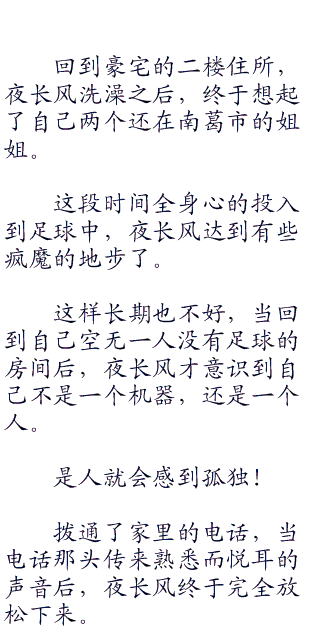 回到豪宅的二楼住所，
夜长风洗澡之后，终于想起
了自己两个还在南葛市的姐
姐。
这段时间全身心的投入
到足球中，夜长风达到有些
疯魔的地步了。
这样长期也不好，当回
到自己空无一人没有足球的
房间后，夜长风才意识到自
己不是一个机器，还是一个
人。
是人就会感到孤独！
拨通了家里的电话，当
电话那头传来熟悉而悦耳的
声音后，夜长风终于完全放
松下来。